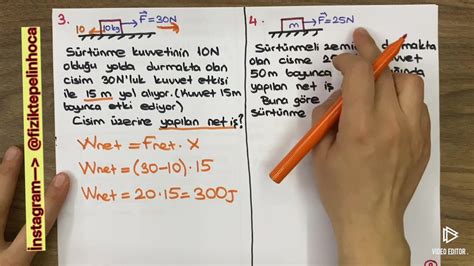 instagram—> @fiziktepelinhoca
3.
10
10kg
F=30N
Sürtünme kuvvetinin 10N
olduğu yolda durmakta olan
cisim 30N'luk kuvvet etkisi
ile 15 m yol alıyor. (Kuvvet 15m
boyunca etki ediyor)
Cisim üzerine yapılan net iş?
Wnet = Fnet . X
Wnet = (30-10) . 15
Wnet = 20.15 = 300J
4.
m
F=25N
Sürtünmeli durmakta
olan cisme
50m boyunca
yapılan net iş
Buna göre
Sürtünme
VIDEO EDITOR